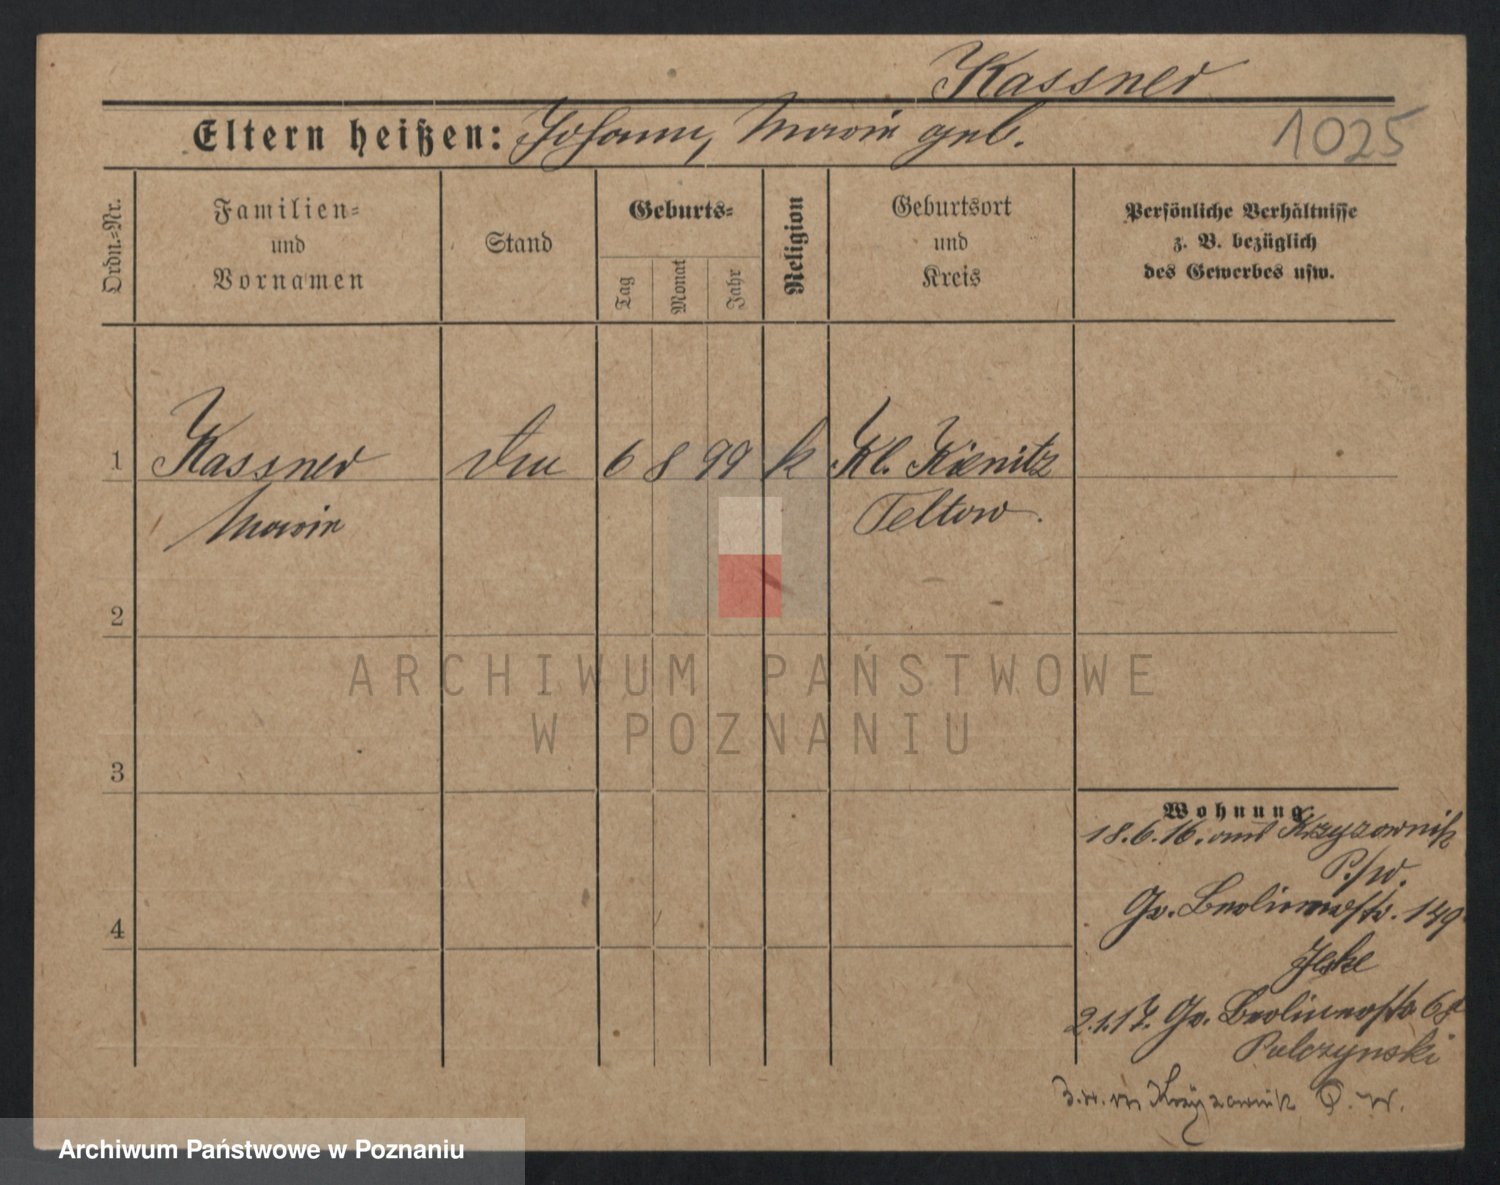 Kassner
Eltern heißen: Johann, Marie geb.
1025
Ordn.=Nr.
Familien=
und
Vornamen
Stand
Geburts=
Tag
Monat
Jahr
Religion
Geburtsort
und
Kreis
Persönliche Verhältnisse
z. B. bezüglich
des Gewerbes usw.
1
Kassner
6 8 99 k Kl. Kienitz
Marie
Teltow.
2
ARCHIWUM PAŃSTWOWE
W POZNANIU
3
Wohnung
18.6.16. aus Krzyzownik
P./W.
Gr. Berlinerstr. 149
Jeske
4
2.1.17. Gr. Berlinerstr
Palczynski
Krzyzownik P. W.
Archiwum Państwowe w Poznaniu